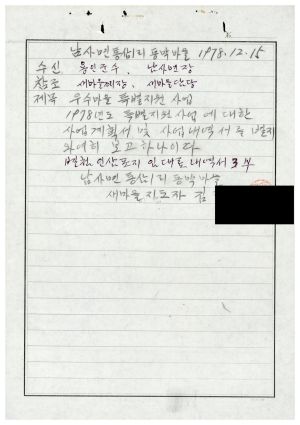 남사면 통삼1리 동막마을 1978.12.15
수신 용인군수, 남사면장
참조 새마을과장, 새마을담당
제목 우수마을 특별지원 사업
1978년도 특별지원사업에 대한
사업계획서 및 사업내역서를 별지
와 여히 보고하나이다
별첨 인상표지 임대료 내역서 3부
남사면 통삼1리 동막마을
새마을지도자 김